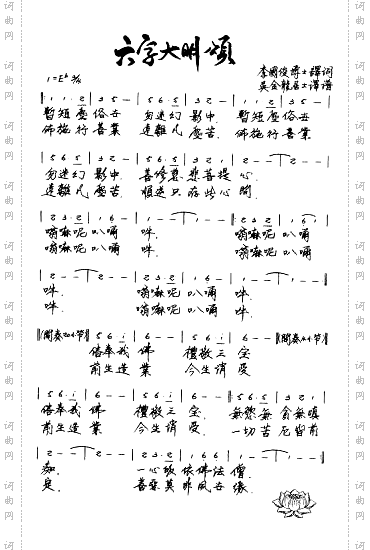 六字大明頌
1=E♭ 2/4
李國俊博士譯詞
吳金龍居士譯譜
暫短塵俗去 勿迷幻影中. 暫短塵俗去
佛施行善業 遠離凡塵苦. 佛施行善業
勿迷幻影中. 善修慈悲菩提心.
遠離凡塵苦. 順逆只存些心間.
嗡嘛呢叭唵 吽. 嗡嘛呢叭唵
嗡嘛呢叭唵 吽. 嗡嘛呢叭唵
吽. 嗡嘛呢叭唵 吽.
吽. 嗡嘛呢叭唵 吽.
(間奏20小節) 信奉我佛 禮敬三宝 (間奏4小節)
前生造業 今生消受
信奉我佛 禮敬三宝. 無愁無貪無嗔
前生造業 今生消受. 一切苦厄皆前
痴. 一心皈依佛法僧.
是. 善惡莫非夙去緣.
词曲网